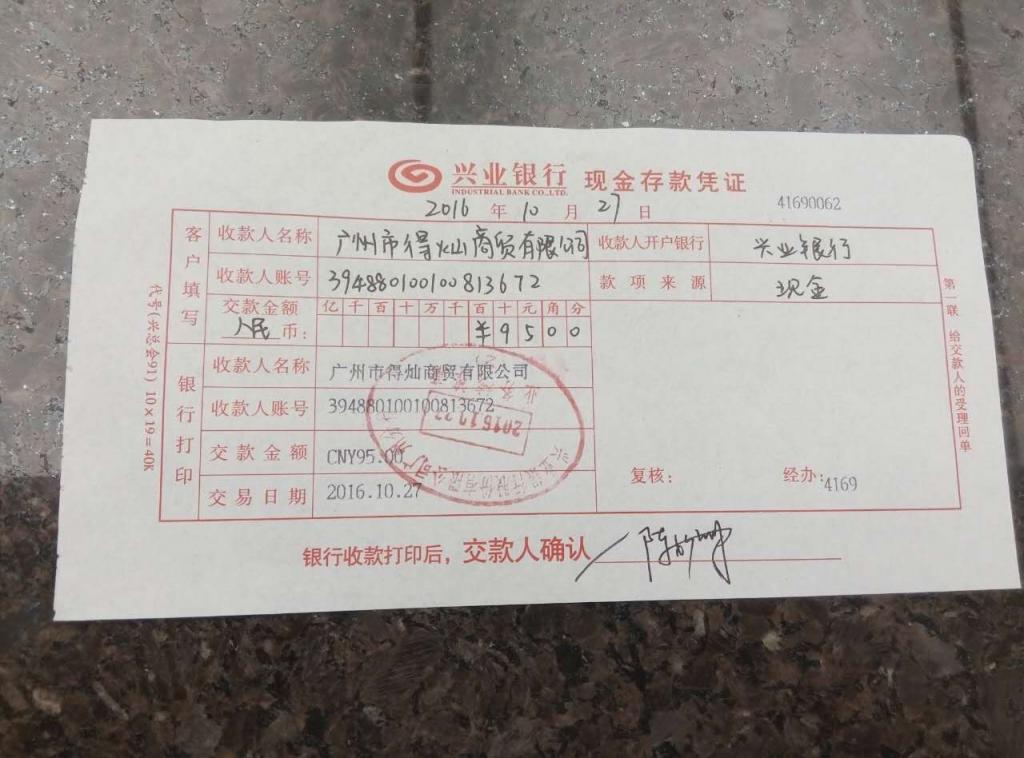 兴业银行 现金存款凭证
INDUSTRIAL BANK CO.,LTD.
2016 年 10 月 27 日 41690062
客户填写
收款人名称 广州市得灿商贸有限公司 收款人开户银行 兴业银行
收款人账号 394880100100813672 款项来源 现金
交款金额 亿 千 百 十 万 千 百 十 元 角 分
人民币: ¥ 9 5 0 0
银行打印
收款人名称 广州市得灿商贸有限公司
收款人账号 394880100100813672
交款金额 CNY95.00
交易日期 2016.10.27
复核: 经办:4169
银行收款打印后,交款人确认 陈
代号(兴总会91) 10×19=40K
第一联 给交款人的受理回单
兴业银行股份有限公司广州
2016.10.27